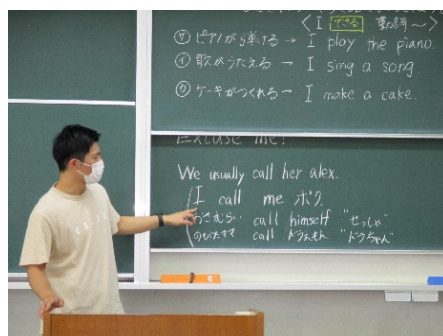 〈I できる 動詞 〜〉
㋐ ピアノが弾ける → I play the piano.
㋑ 歌がうたえる → I sing a song.
㋒ ケーキがつくれる → I make a cake.
Excuse me!
We usually call her alex.
I call me ボク
おさむらい call himself "せっしゃ"
のび太ママ call ドラえもん "ドラちゃん"